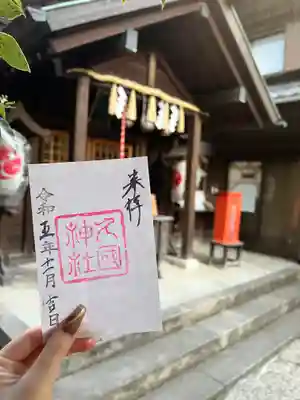 来拝
大國
神社
令和五年十一月吉日